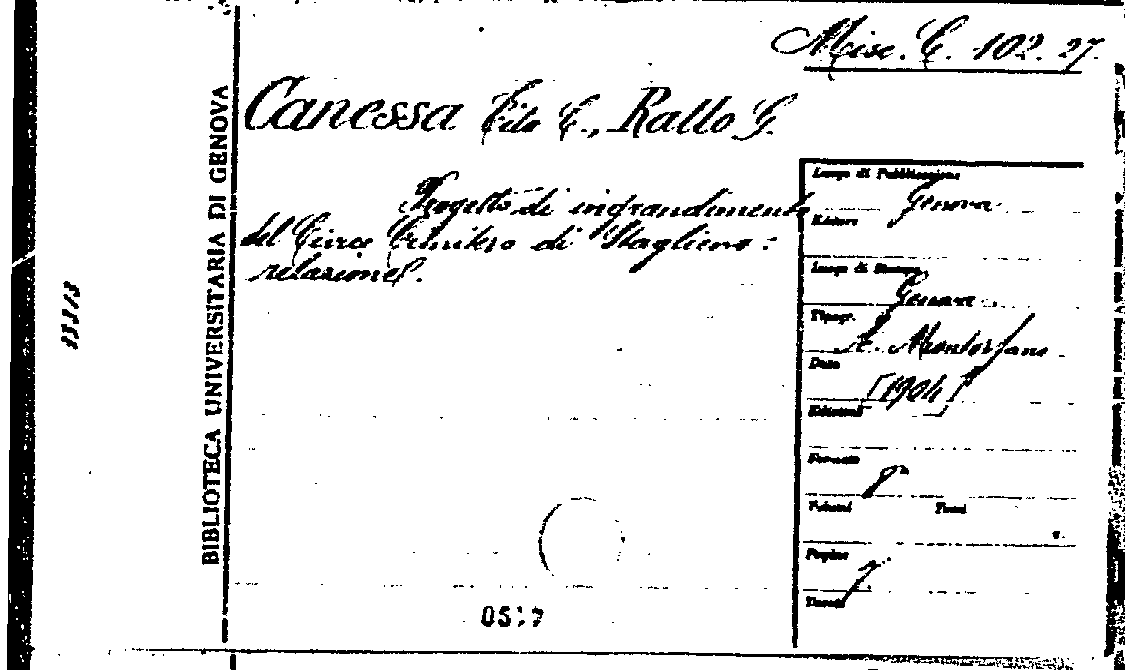 Misc. C. 102. 27.
Canessa Tito C., Rallo G.
Progetto di ingrandimento
del Civico Cimitero di Staglieno :
relazione.
BIBLIOTECA UNIVERSITARIA DI GENOVA
Luogo di Pubblicazione
Genova
Editore
Luogo di Stampa
Genova
Tipogr.
A. Montorfano
Data
[1904]
Edizione
Formato
8°
Volumi Tomi
Pagine
7